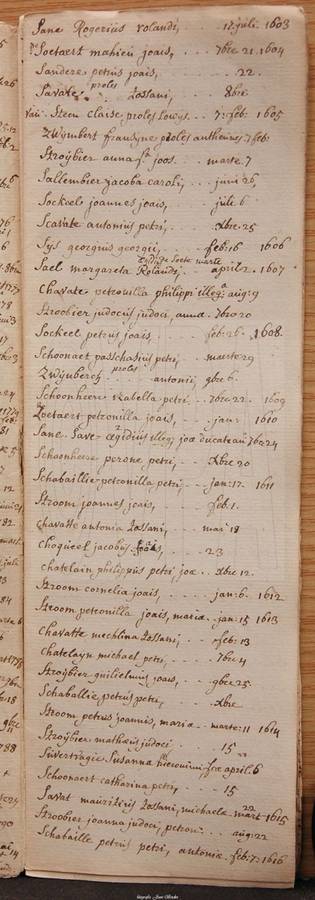 Sane Rogerius rolandi, ... 17. juli. 1603
Soetaert mahieu joais, ... 7bre 21. 1604
Sandere petrus joais, ... 22.
Savate proles Zossani, ... 8bre.
Steen Claise, proles Lowys... 7: feb. 1605
Zwijnbert fransyne proles antheunis 7 feb:
Stroijbier anna fa joos. .. marte. 7
Sallembier jacoba caroli, ... juni 26,
Sockeel joannes joais, ... juli. 6
Scavate antonius petri, ... Xbre. 25
Sijs georgius georgij, ... feb: 16 1606
Sael margareta Rolandi, ... april 2. 1607
Chavate petronilla philippi illeg: aug: 9
Stroobier judocus judoci, anna. 7bre 20
Sockeel petrus joais, ... feb: 26. 1608.
Schoonaet passchasius petri, ... maerte 29
Zwijnberch proles antonii, 9bre 6.
Schoonheere Izabella petri. .. 7bre 22. 1609
Zoetaert petronilla joais, ... jan: 1610
Sane Save egidius illeg; joa ducateau 7bre 24
Schoonheere perone petri, ... Xbre 20
Schabaillie petronilla petri, ... jan: 17. 1611
Stroom joannes joais, ... feb. 1.
Chavatte antonia Zossani, ... mai 18
Choqueel jacobus joais, ... 23
Chatelain philippus petri joa .. Xbre 12.
Stroom cornelia joais, ... jan: 6. 1612
Stroom petronilla joais, maria.. jan: 15 1613
Chavatte mechlina Zossani, ... feb: 13
Chatelayn michael petri, ... 7bre 4
Stroijbier guilielmus joais, ... 9bre 25.
Schaballie petrus petri, ... Xbre
Stroom petrus joannis, maria .. marte: 11 1614
Stroijbier mathæus judoci ... 15
Sivertragie Susanna hieronimi, april. 6
Schoonaert catharina petri, .. 15
Savat mauritius Zossani, michaela. mart 22 1615
Stroobier joanna judoci petron: .. aug: 22
Schabaille petrus petri, antonia. feb: 7: 1616